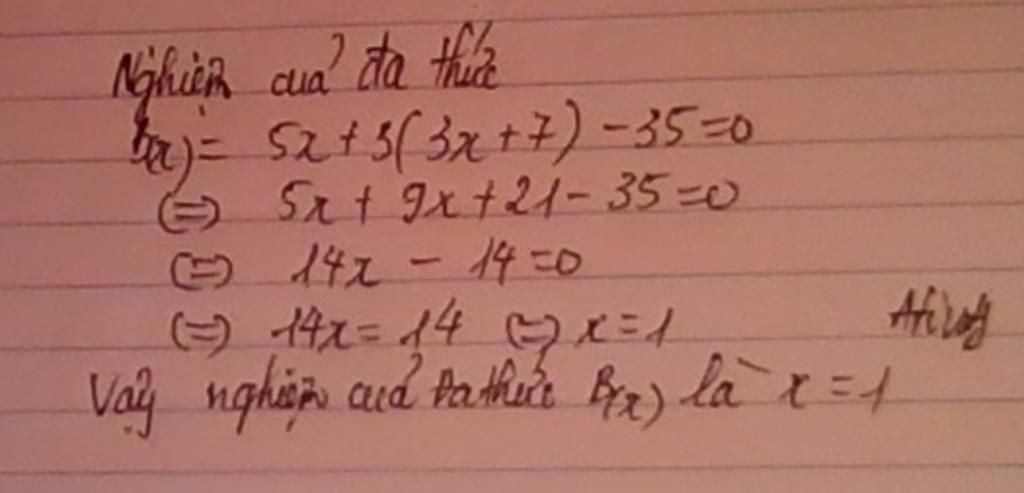 Nghiệm của đa thức
B(x) = 5x + 3(3x + 7) - 35 = 0
(=) 5x + 9x + 21 - 35 = 0
(=) 14x - 14 = 0
(=) 14x = 14 (=) x = 1
Vậy nghiệm của Đa thức B(x) là x = 1